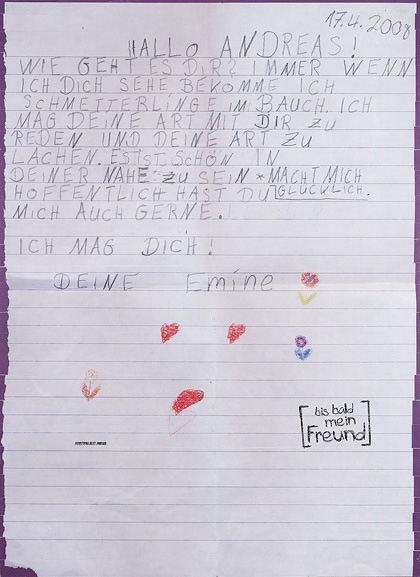 17.4.2008
HALLO ANDREAS!
WIE GEHT ES DIR? IMMER WENN
ICH DICH SEHE BEKOMME ICH
SCHMETTERLINGE IM BAUCH. ICH
MAG DEINE ART MIT DIR ZU
REDEN UND DEINE ART ZU
LACHEN. ES IST SCHÖN IN
DEINER NÄHE ZU SEIN * MACHT MICH
HOFFENTLICH HAST DU GLÜCKLICH.
MICH AUCH GERNE.
ICH MAG DICH!
DEINE Emine
bis bald
mein
Freund